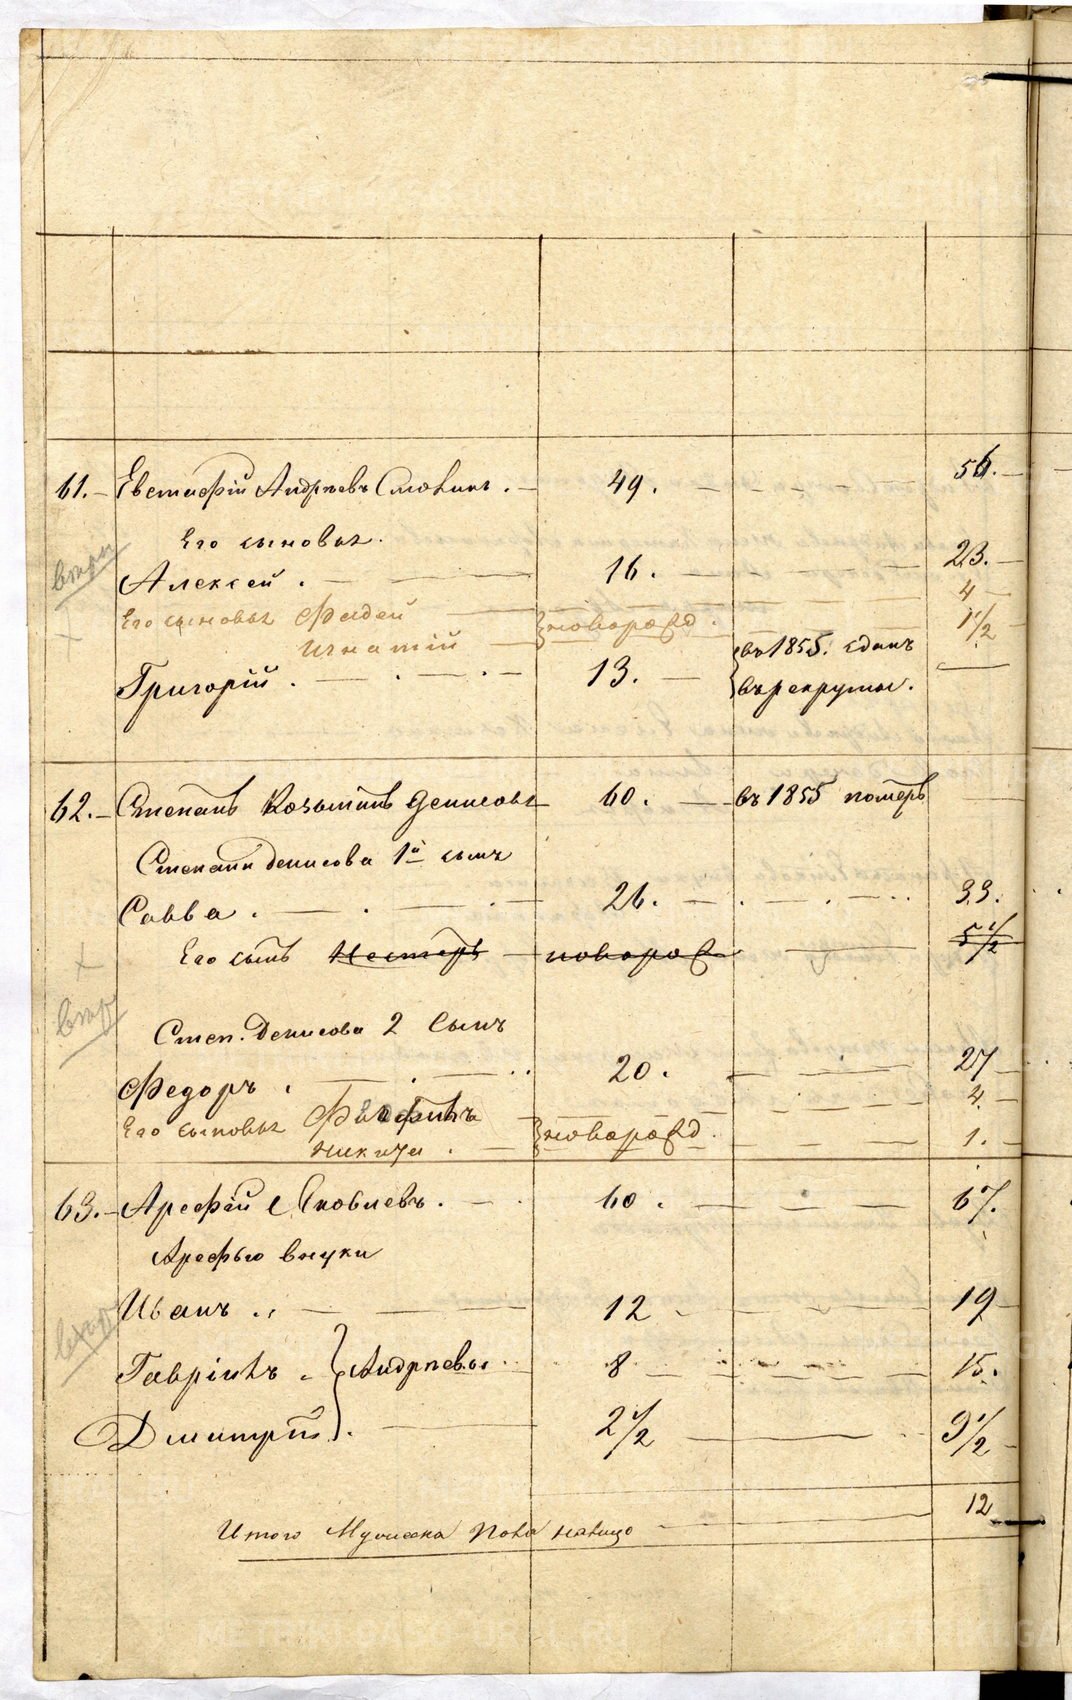 61. Евстифій Андреевъ Сложинъ. 49. 56.
Его сыновья.
Алексей. 16. 23.
Его сыновья Фадей новорожд. 4
Игнатій 1 1/2
Григорій. 13. въ 1855. сданъ
въ рекруты.
62. Степанъ Козьминъ Денисовъ 60. въ 1855 померъ
Степана Денисова 1й сынъ
Савва. 26. 33.
Его сынъ Нестеръ новорож 5 1/2
Степ. Денисова 2 сынъ
Федоръ. 20. 27
Его сыновья новорожд. 4.
Никита. 1.
63. Арефій Яковлевъ. 60. 67.
Арефью внуки
Иванъ. 12 19
Гаврілъ Андреевы. 8 15.
Дмитрій. 2 1/2 9 1/2
12
Итого Мужеска пола налицо